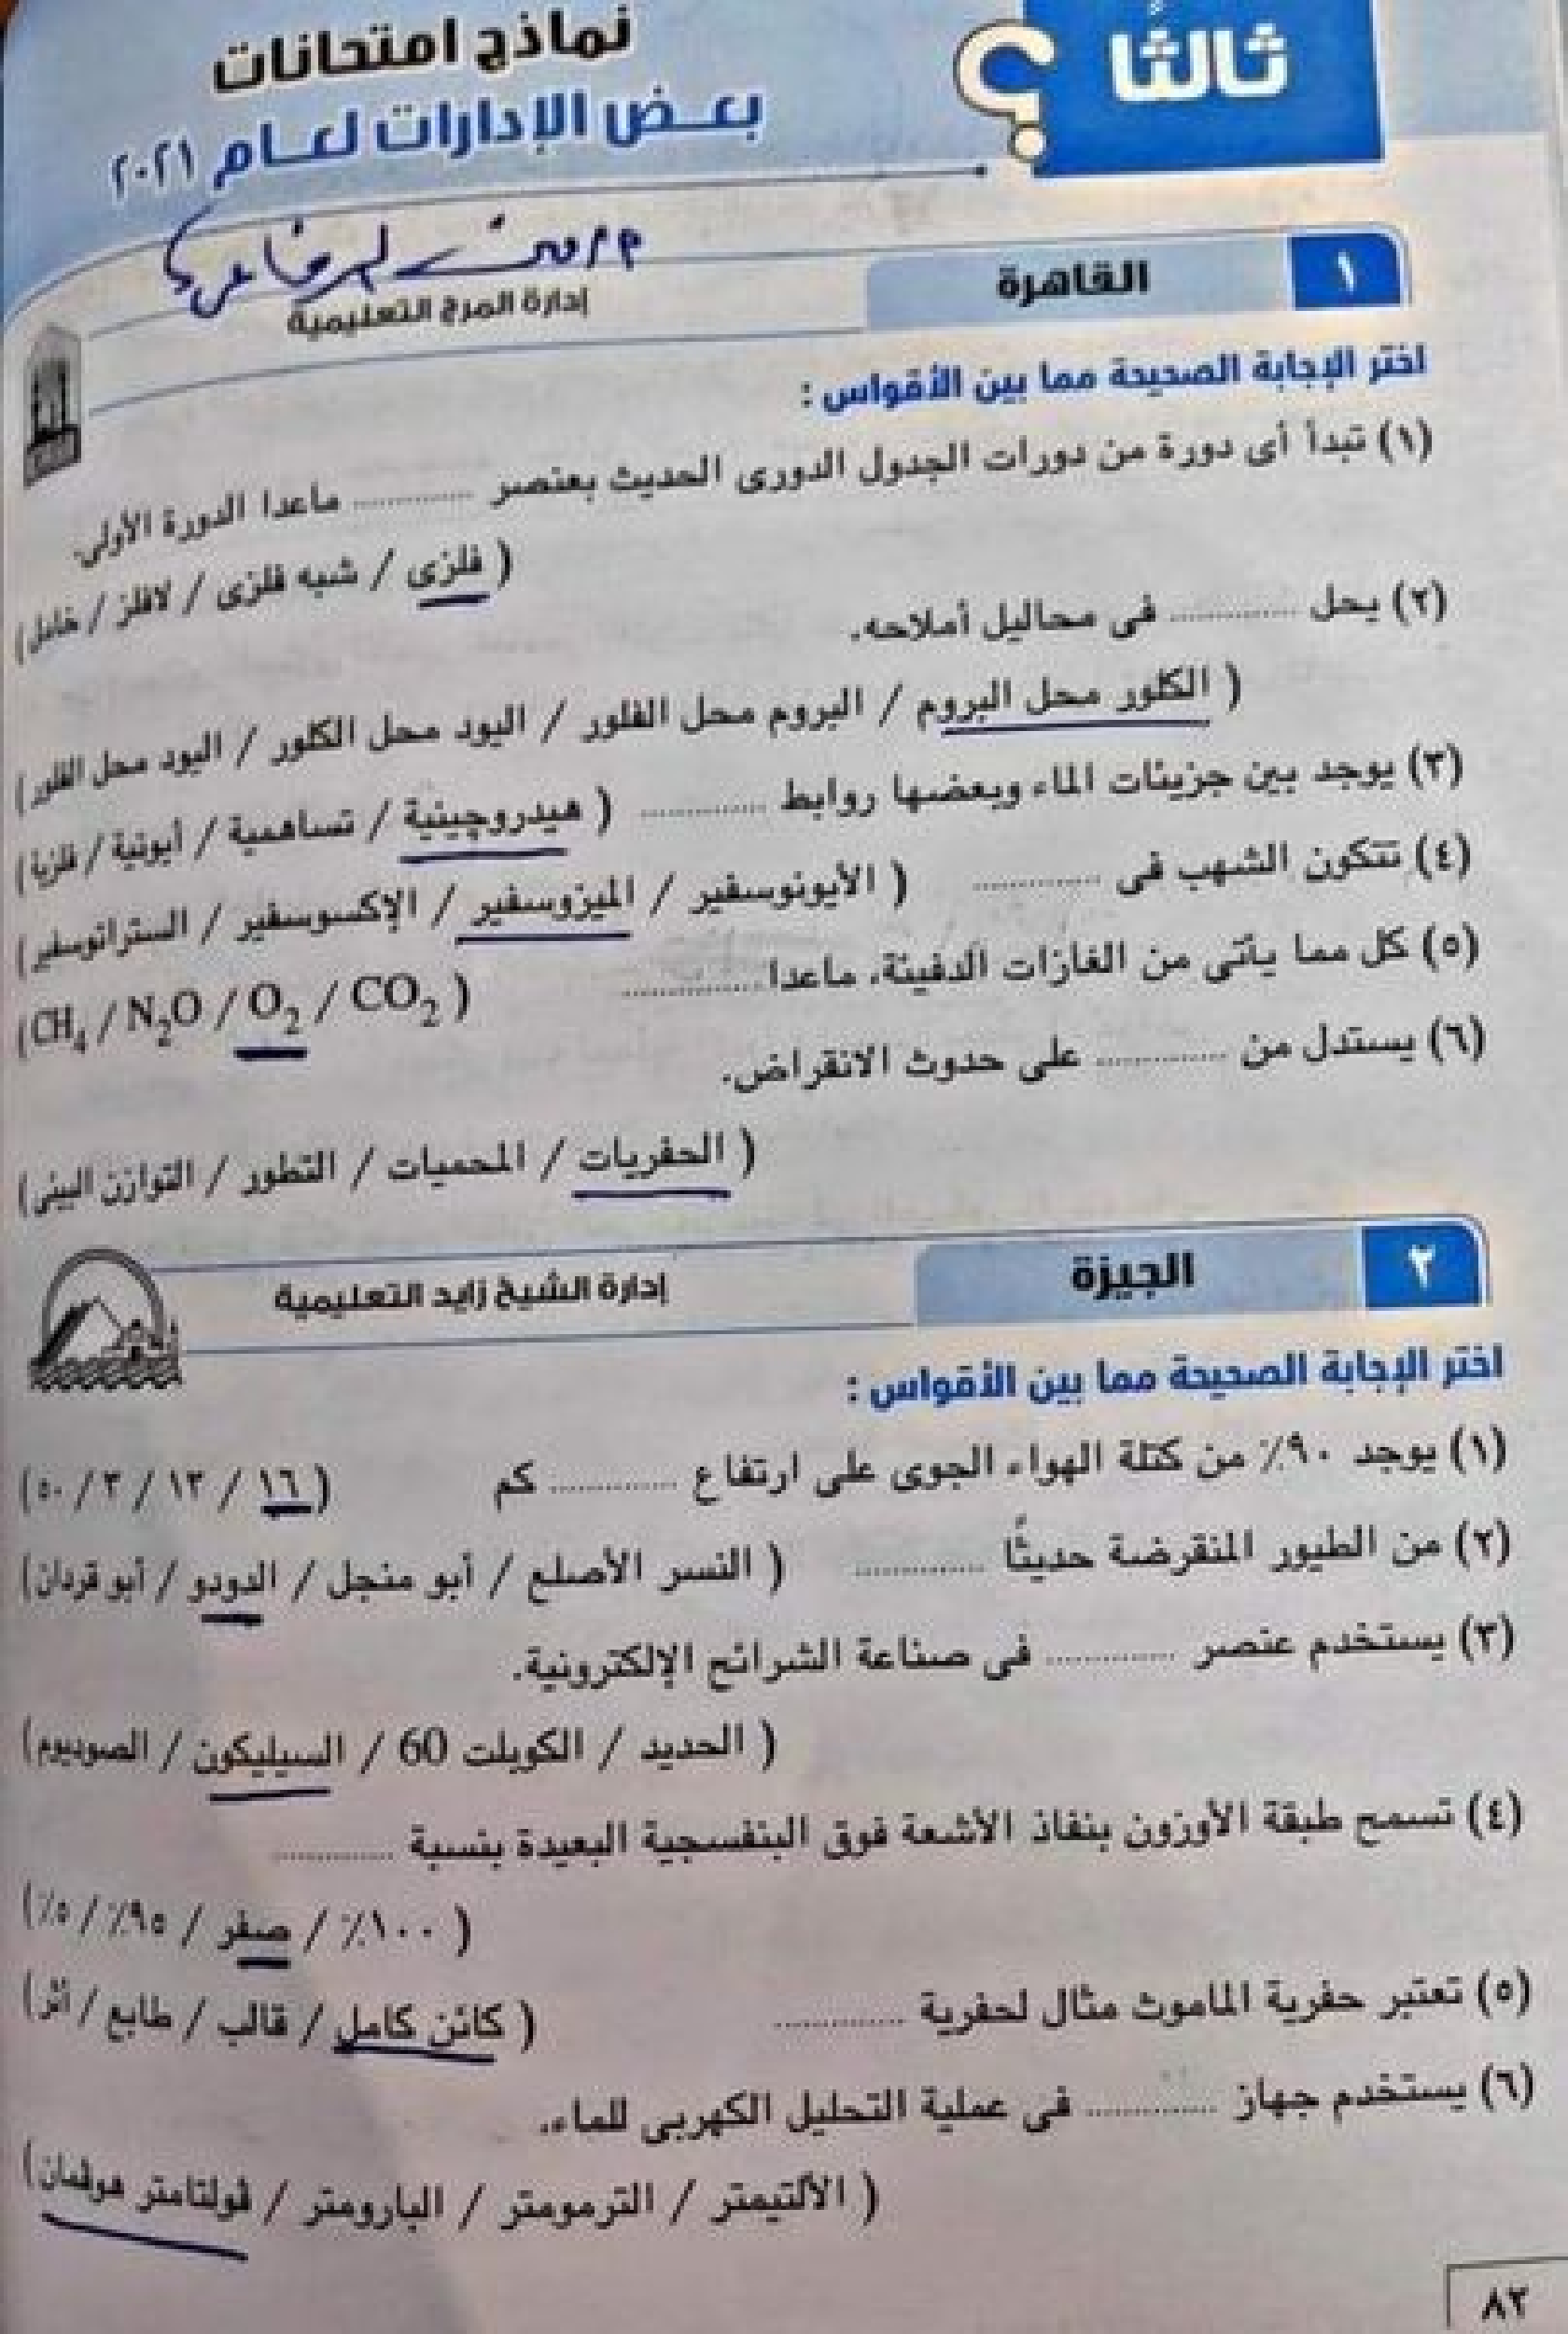 ثالثًا
نماذج امتحانات
بعض الإدارات لعام ٢٠٢١
١ القاهرة إدارة المرج التعليمية
اختر الإجابة الصحيحة مما بين الأقواس :
(١) تبدأ أى دورة من دورات الجدول الدورى الحديث بعنصر ............ ماعدا الدورة الأولى.
( فلزى / شبه فلزى / لافلز / خامل)
(٢) يحل ............ فى محاليل أملاحه.
( الكلور محل البروم / البروم محل الفلور / اليود محل الكلور / اليود محل الفلور)
(٣) يوجد بين جزيئات الماء وبعضها روابط ............ ( هيدروچينية / تساهمية / أيونية / فلزية)
(٤) تتكون الشهب فى ............ ( الأيونوسفير / الميزوسفير / الإكسوسفير / الستراتوسفير)
(٥) كل مما يأتى من الغازات الدفيئة، ماعدا ............ (CH₄ / N₂O / O₂ / CO₂ )
(٦) يستدل من ............ على حدوث الانقراض.
( الحفريات / المحميات / التطور / التوازن البيئى)
٢ الجيزة إدارة الشيخ زايد التعليمية
اختر الإجابة الصحيحة مما بين الأقواس :
(١) يوجد ٩٠٪ من كتلة الهواء الجوى على ارتفاع ............ كم ( ١٦ / ١٣ / ٣ / ٥٠)
(٢) من الطيور المنقرضة حديثًا ............ ( النسر الأصلع / أبو منجل / الدودو / أبو قردان)
(٣) يستخدم عنصر ............ فى صناعة الشرائح الإلكترونية.
( الحديد / الكوبلت 60 / السيليكون / الصوديوم)
(٤) تسمح طبقة الأوزون بنفاذ الأشعة فوق البنفسجية البعيدة بنسبة ............
( ١٠٠٪ / صفر / ٩٥٪ / ٥٪)
(٥) تعتبر حفرية الماموث مثال لحفرية ............ ( كائن كامل / قالب / طابع / أثر)
(٦) يستخدم جهاز ............ فى عملية التحليل الكهربى للماء.
( الألتيمتر / الترمومتر / البارومتر / ڤولتامتر هوفمان)
٨٢